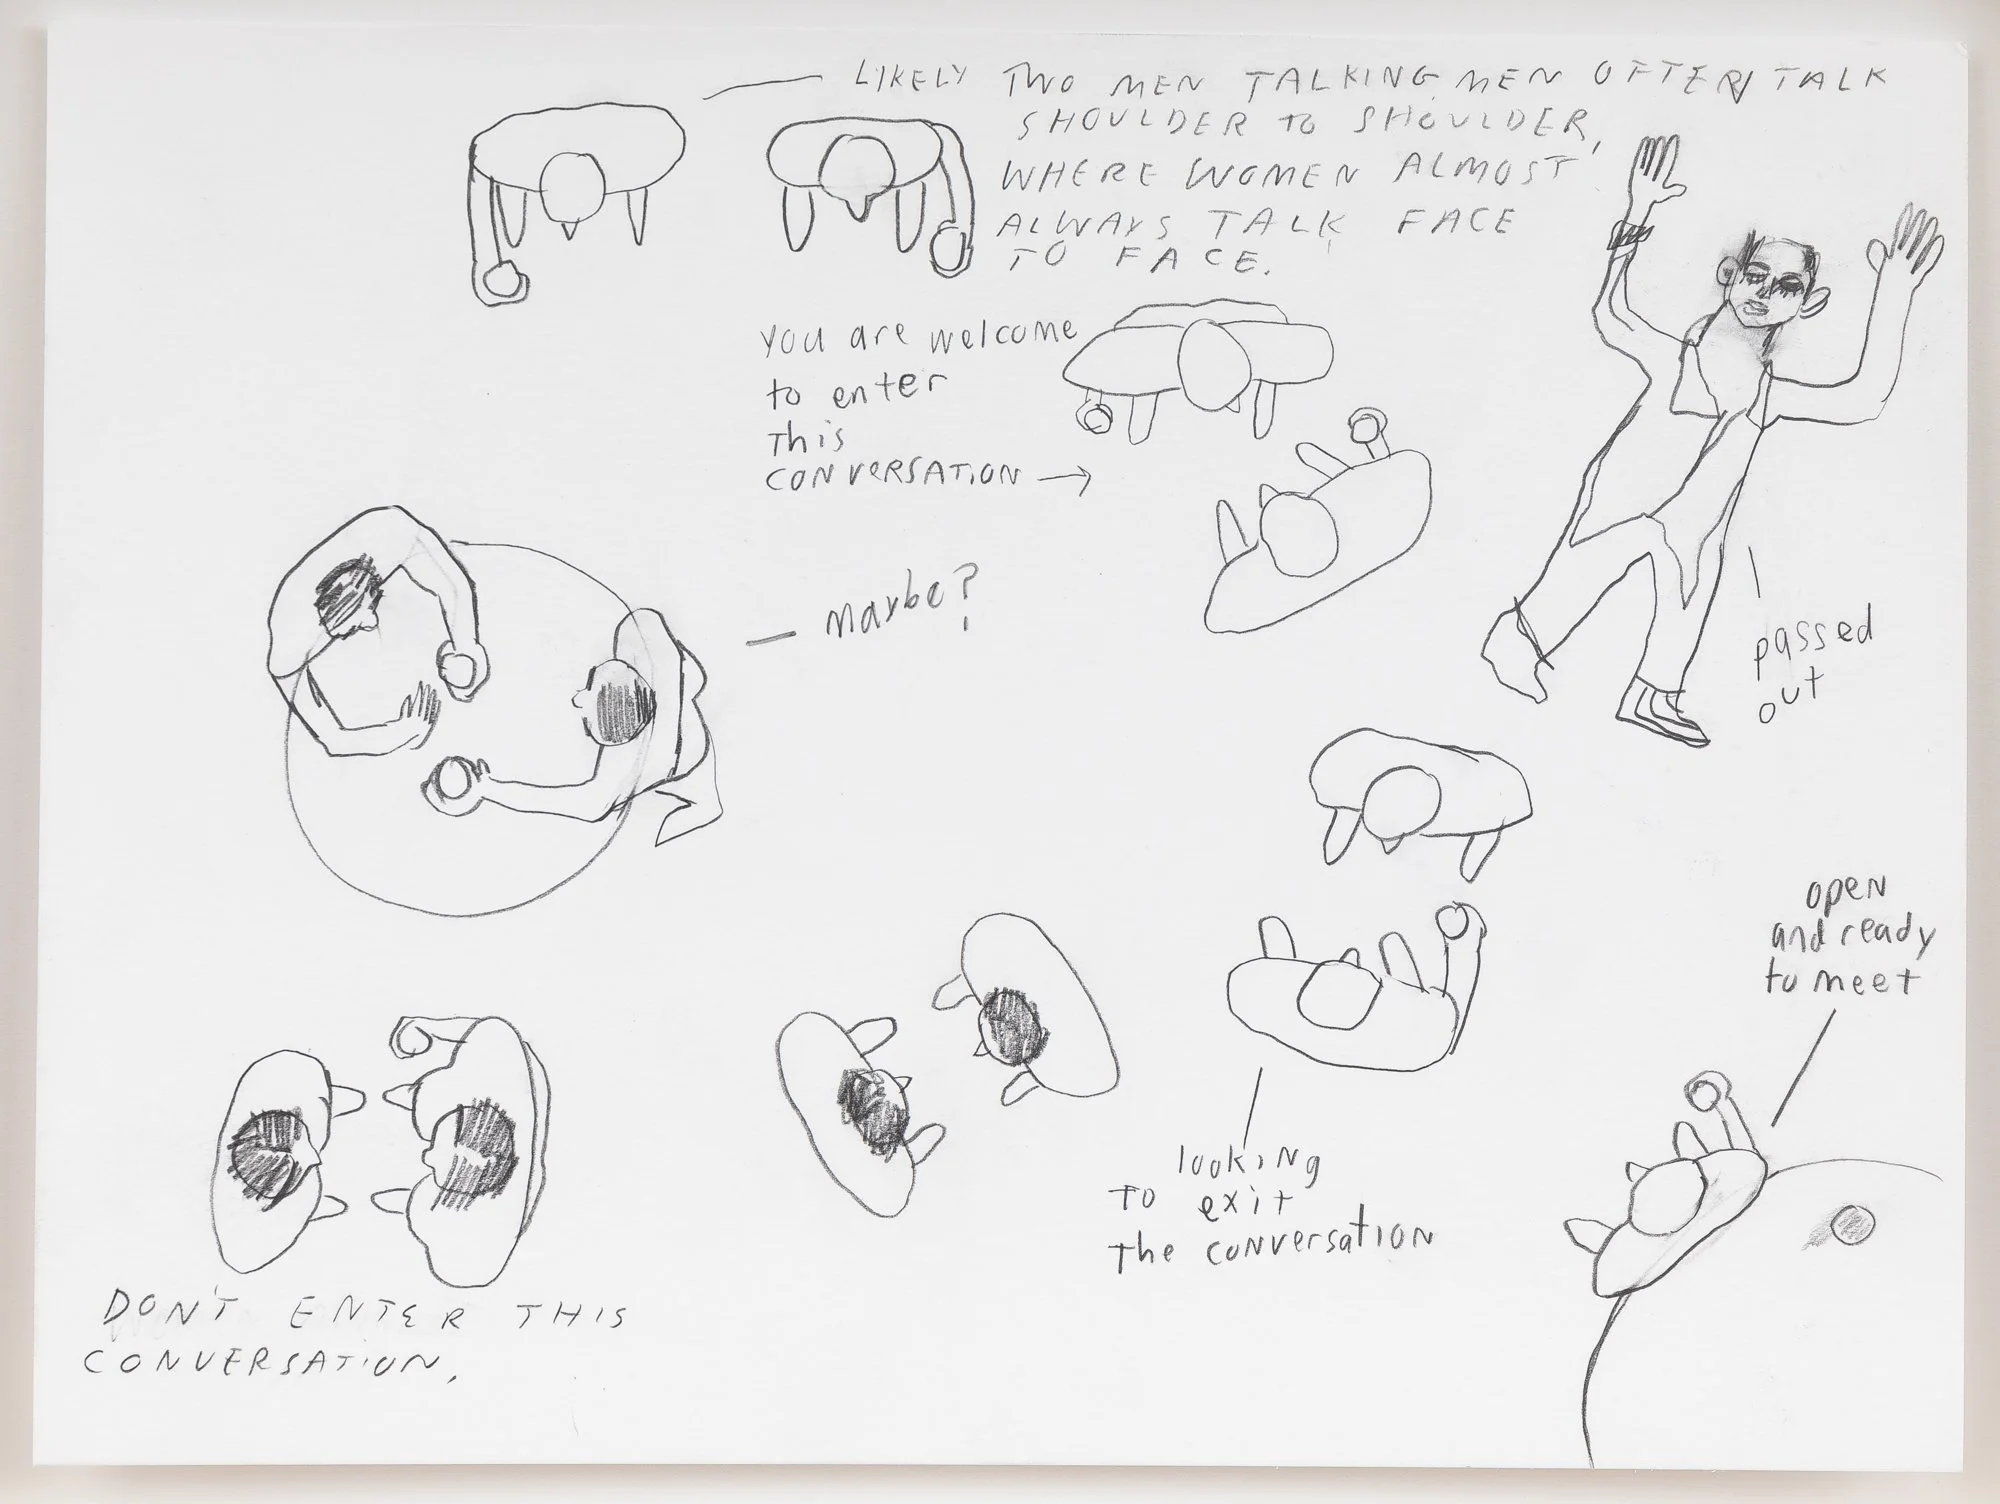 LIKELY TWO MEN TALKING. MEN OFTEN TALK
SHOULDER TO SHOULDER,
WHERE WOMEN ALMOST
ALWAYS TALK FACE
TO FACE.
you are welcome
to enter
This
CONVERSATION
maybe?
passed
out
open
and ready
to meet
looking
TO exit
The conversation
DON'T ENTER THIS
CONVERSATION.